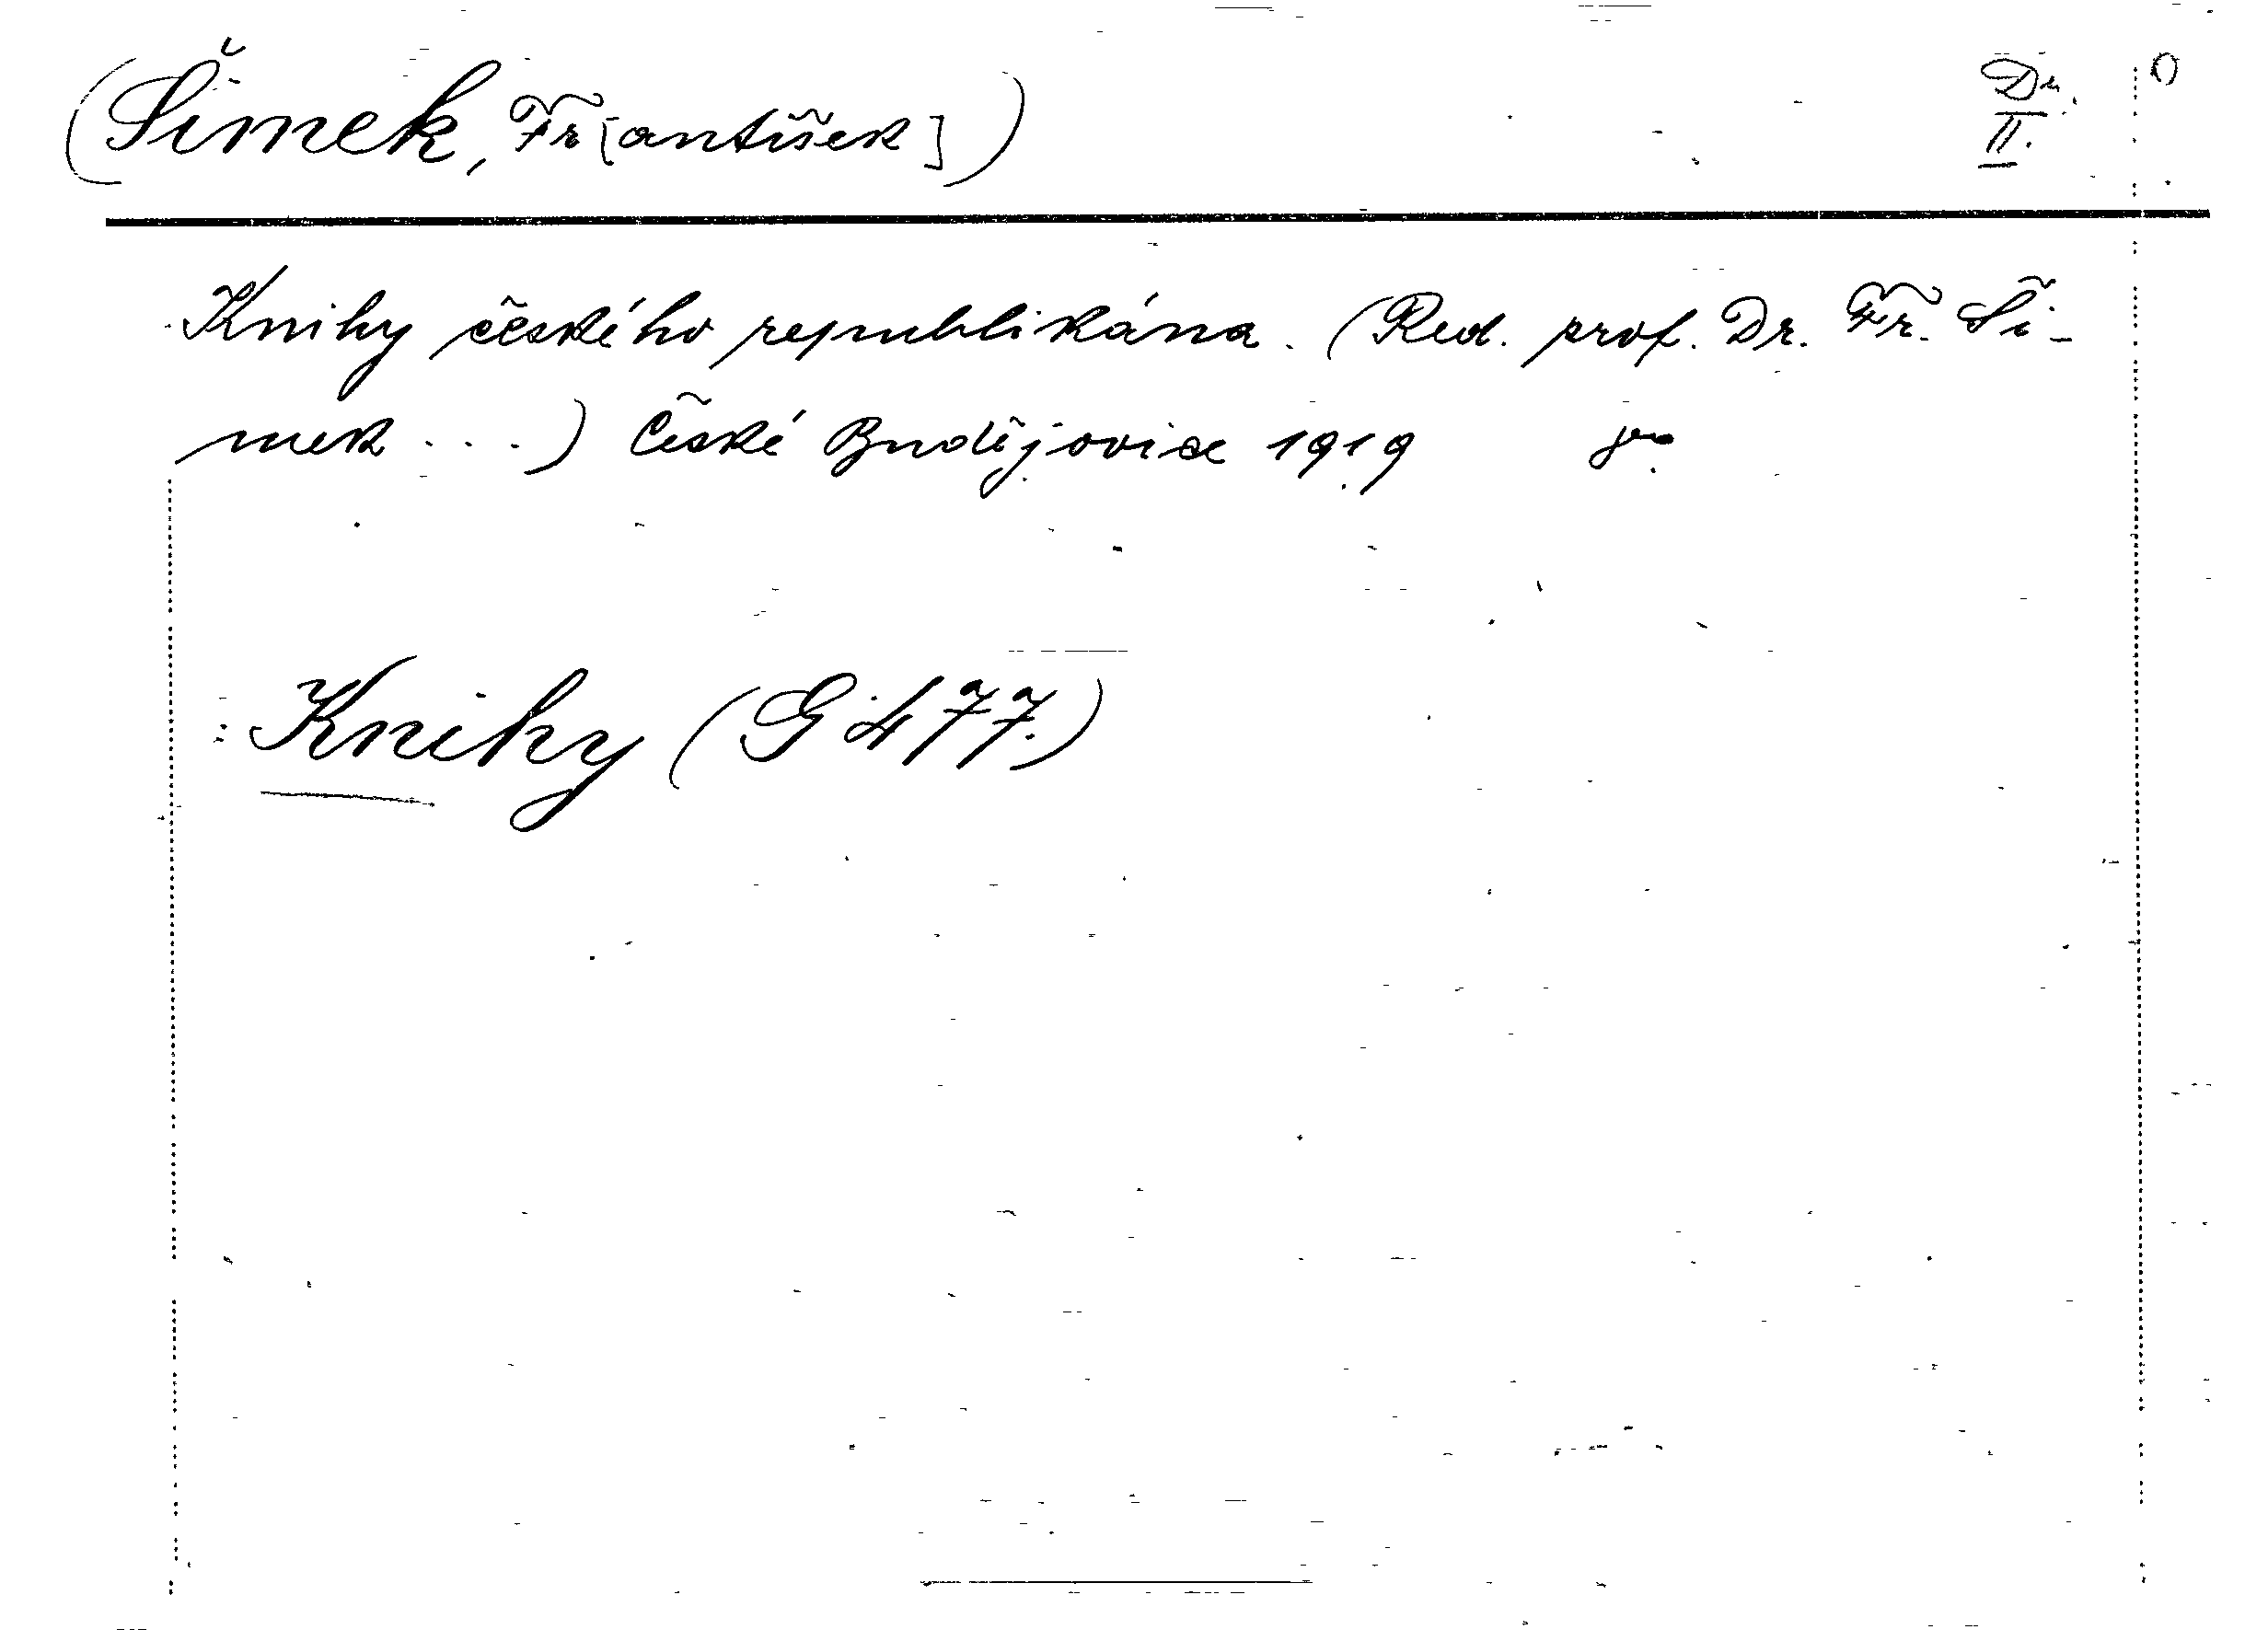 (Šimek, Fr[antišek]) Dr. II.
Knihy českého republikána. (Red. prof. Dr. Fr. Ši-
mek ...) České Budějovice 1919
Knihy (G 477.)